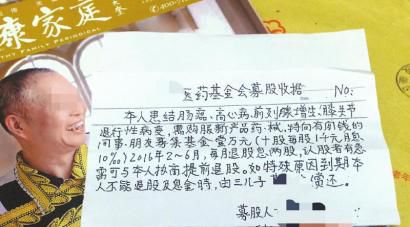 康家庭
THY FAMILY PERIODICAL
医药基金会募股收据
本人患结肠癌、高心病、前列腺增生、膝关节
退行性病变，需购服新产品药、械，特向有闲钱的
同事、朋友募集基金壹万元（十股每股1千元，月息
10%）2016年2～6月，每月退股息两股，认股者有急
需可与本人协商提前退股。如特殊原因到期本
人不能退股及息金时，由三儿子
赏还。
募股人：